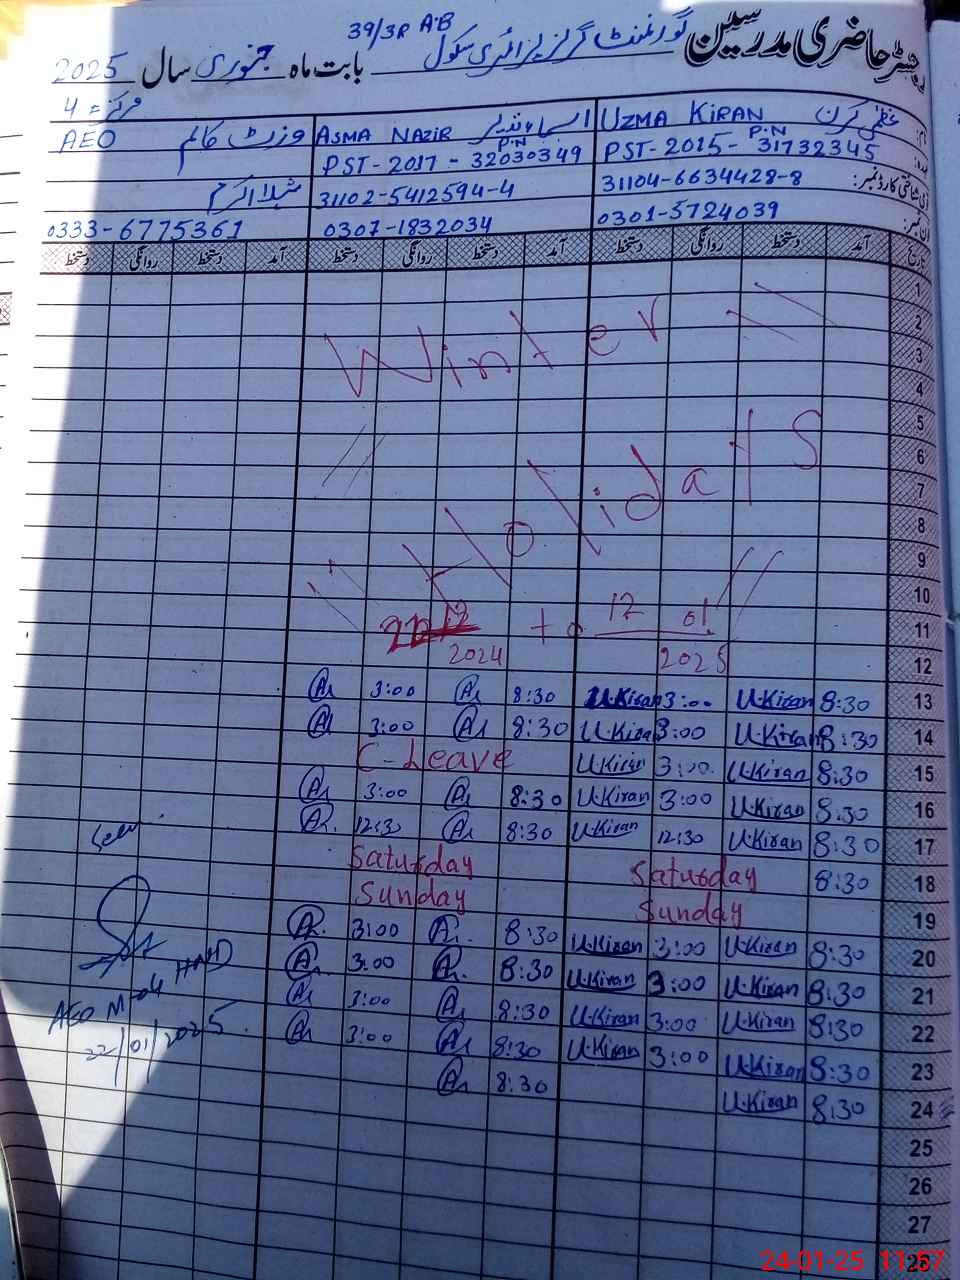 رجسٹر حاضری مدرسین گورنمنٹ گرلز پرائمری سکول 39/3R A·B بابت ماہ جنوری سال 2025
مرکز = 4
نام: عظمیٰ کرن UZMA KIRAN اسماء نذیر ASMA NAZIR وزٹ کالم AEO
عہدہ: PST-2015- P·N 31732345 PST-2017- P·N 32030349
شناختی کارڈ نمبر: 31104-6634428-8 31102-5412594-4 شہلا اکرم
فون نمبر: 0301-5724039 0307-1832034 0333-6775361
تاریخ آمد دستخط روانگی دستخط آمد دستخط روانگی دستخط آمد دستخط روانگی دستخط
1
2
Winter
3
4
5
6
7
Holidays
8
9
10
11 12 01 to 12
12 2025 2024
13 8:30 U·Kiran 3:00 U·Kiran 8:30 3:00
14 8:30 U·Kiran 3:00 U·Kiran 8:30 3:00
15 8:30 U·Kiran 3:00 U·Kiran C-Leave
16 8:30 U·Kiran 3:00 U·Kiran 8:30 3:00
17 8:30 U·Kiran 12:30 U·Kiran 8:30 12:30 Seen
18 8:30 Saturday Saturday
19 Sunday Sunday
20 8:30 U·Kiran 3:00 U·Kiran 8:30 3:00
21 8:30 U·Kiran 3:00 U·Kiran 8:30 3:00
22 8:30 U·Kiran 3:00 U·Kiran 8:30 3:00
23 8:30 U·Kiran 3:00 U·Kiran 8:30 3:00
24 8:30 U·Kiran 8:30
AEO M-04 HND
22/01/2025
25
26
27
28
24-01-25 11:57